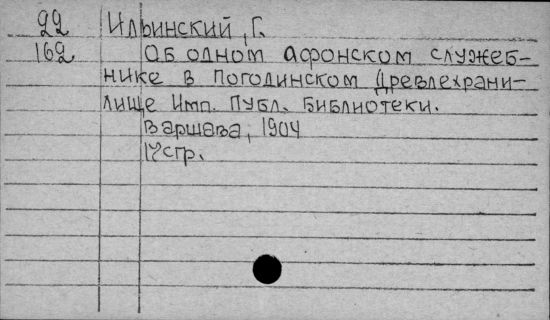 22 Ильинский, Г.
162 Об одном афонском служеб-
нике в Погодинском Древлехрани-
лище Имп. Публ. Библиотеки.
Варшава, 1904
17 стр.